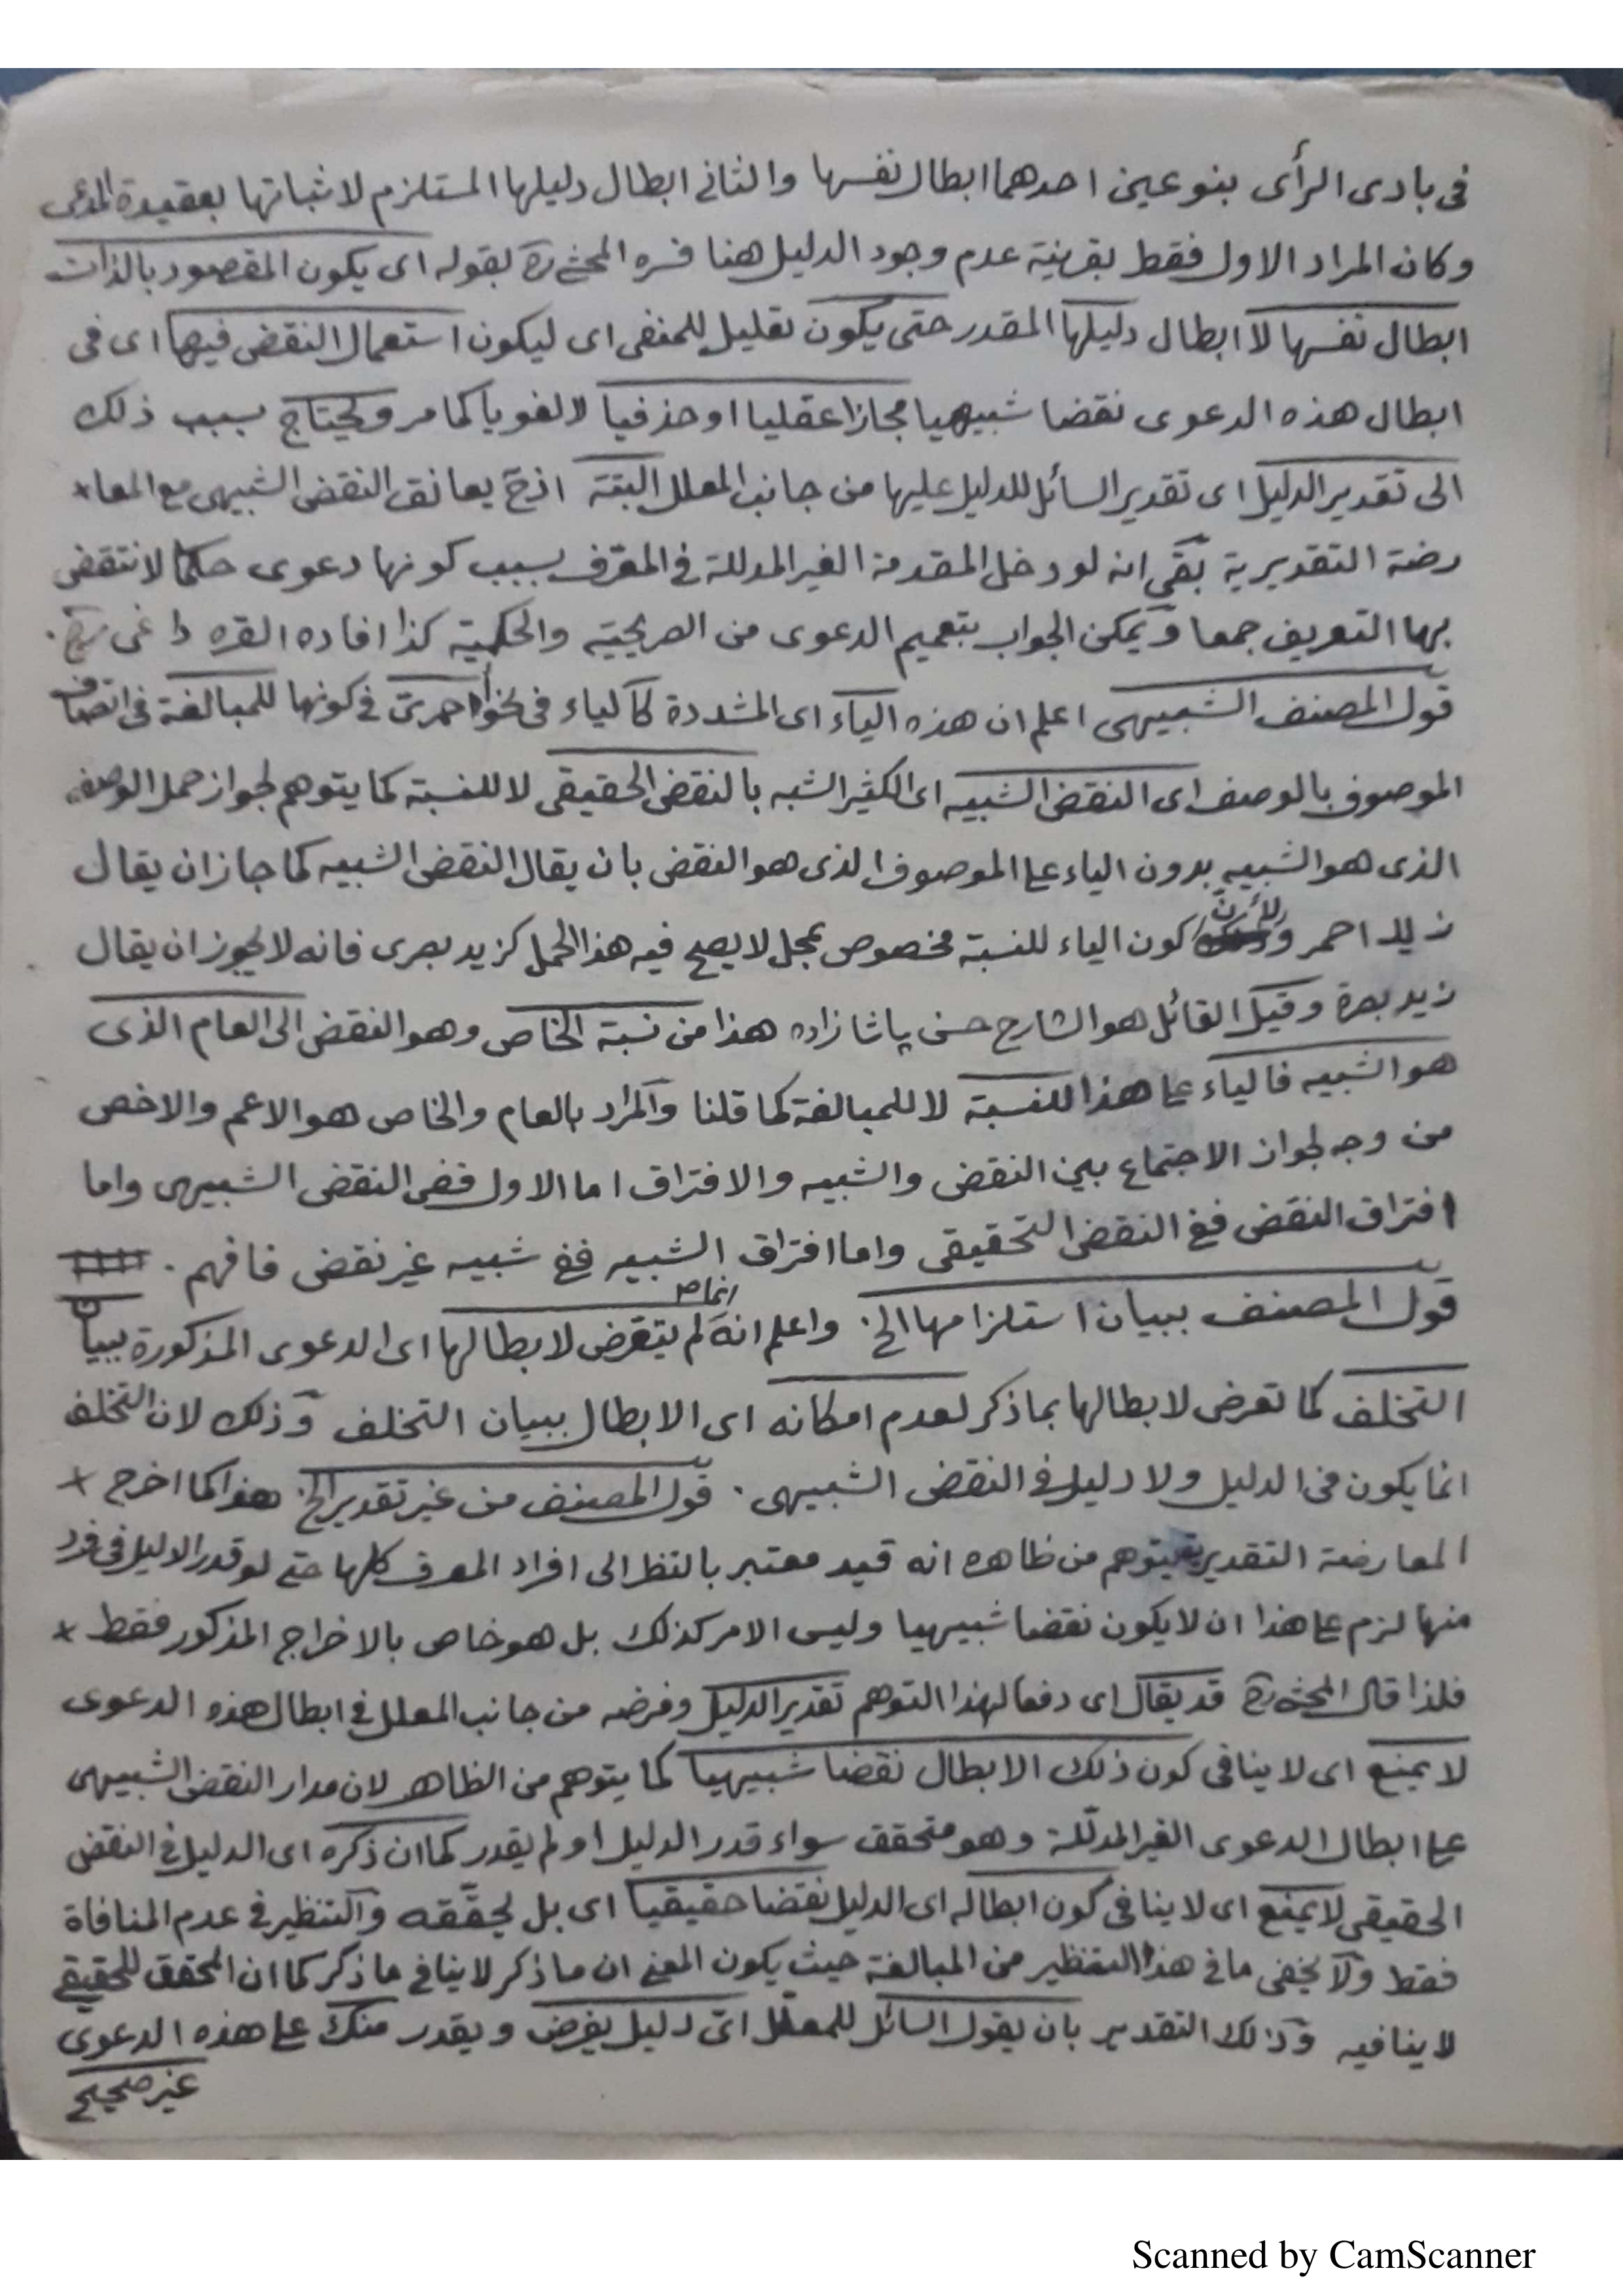 فى بادى الرأى بنوعين احدهما ابطال نفسها والثانى ابطال دليلها المستلزم لاثباتها بعقيدة المدعى
وكان المراد الاول فقط بقرينة عدم وجود الدليل هنا فسره المحشى ره بقوله اى يكون المقصود بالذات
ابطال نفسها لا ابطال دليلها المقدر حتى يكون تعليل للمنفى اى ليكون استعمال النقض فيها اى فى
ابطال هذه الدعوى نقضا شبيهيا مجازا عقليا او حذفيا لا لغويا كما مر ويحتاج بسبب ذلك
الى تقدير الدليل اى تقدير السائل للدليل عليها من جانب المعلل البتة اذ ح يعانق النقض الشبيهى مع المعا
رضة التقديرية بقى انه لو دخل المقدمة الغير المدللة فى المعرف بسبب كونها دعوى حكما لانتقض
بها التعريف جمعا ويمكن الجواب بتعميم الدعوى من الصريحية والحكمية كذا افاده القره داغى
قول المصنف الشبيهى اعلم ان هذه الياء اى المشددة كالياء فى نحو احمرىّ فى كونها للمبالغة فى اتصاف
الموصوف بالوصف اى النقض الشبيه اى الكثير الشبه بالنقض الحقيقى لا للنسبة كما يتوهم لجواز حمل الوصف
الذى هو الشبيه بدون الياء على الموصوف الذى هو النقض بان يقال النقض الشبيه كما جاز ان يقال
زيد احمر ولأن كون الياء للنسبة مخصوص بمحل لا يصح فيه هذا الحمل كزيد بصرى فانه لا يجوز ان يقال
زيد بصرة وقيل القائل هو الشارح حسن پاشا زاده هذا من نسبة الخاص وهو النقض الى العام الذى
هو الشبيه فالياء على هذا للنسبة لا للمبالغة كما قلنا والمراد بالعام والخاص هو الاعم والاخص
من وجه لجواز الاجتماع بين النقض والشبيه والافتراق اما الاول ففى النقض الشبيهى واما
افتراق النقض ففى النقض التحقيقى واما افتراق الشبيه ففى شبيه غير نقض فافهم .
قول المصنف ببيان استلزامها الخ. واعلم انه انما لم يتعرض لابطالها اى الدعوى المذكورة ببيان
التخلف كما تعرض لابطالها بما ذكر لعدم امكانه اى الابطال ببيان التخلف وذلك لان التخلف
انما يكون فى الدليل ولا دليل فى النقض الشبيهى . قول المصنف من غير تقدير الخ. هذا كما اخرج
المعارضة التقديرية يتوهم من ظاهره انه قيد معتبر بالنظر الى افراد المعرف كلها حتى لو قدر الدليل فى فرد
منها لزم على هذا ان لا يكون نقضا شبيهيا وليس الامر كذلك بل هو خاص بالاخراج المذكور فقط
فلذا قال المحشى ره قد يقال اى دفعا لهذا التوهم تقدير الدليل وفرضه من جانب المعلل فى ابطال هذه الدعوى
لا يمنع اى لا ينافى كون ذلك الابطال نقضا شبيهيا كما يتوهم من الظاهر لان مدار النقض الشبيهى
على ابطال الدعوى الغير المدللة وهو متحقق سواء قدر الدليل او لم يقدر كما ان ذكره اى الدليل فى النقض
الحقيقى لا يمنع اى لا ينافى كون ابطاله اى الدليل نقضا حقيقيا اى بل يحققه والتنظير فى عدم المنافاة
فقط ولا يخفى ما فى هذا التنظير من المبالغة حيث يكون المعنى ان ما ذكر لا ينافى ما ذكر كما ان المحقق للحقيقى
لا ينافيه وذلك التقدير بان يقول السائل للمعلل اىّ دليل يفرض ويقدر منك على هذه الدعوى
غير صحيح
Scanned by CamScanner